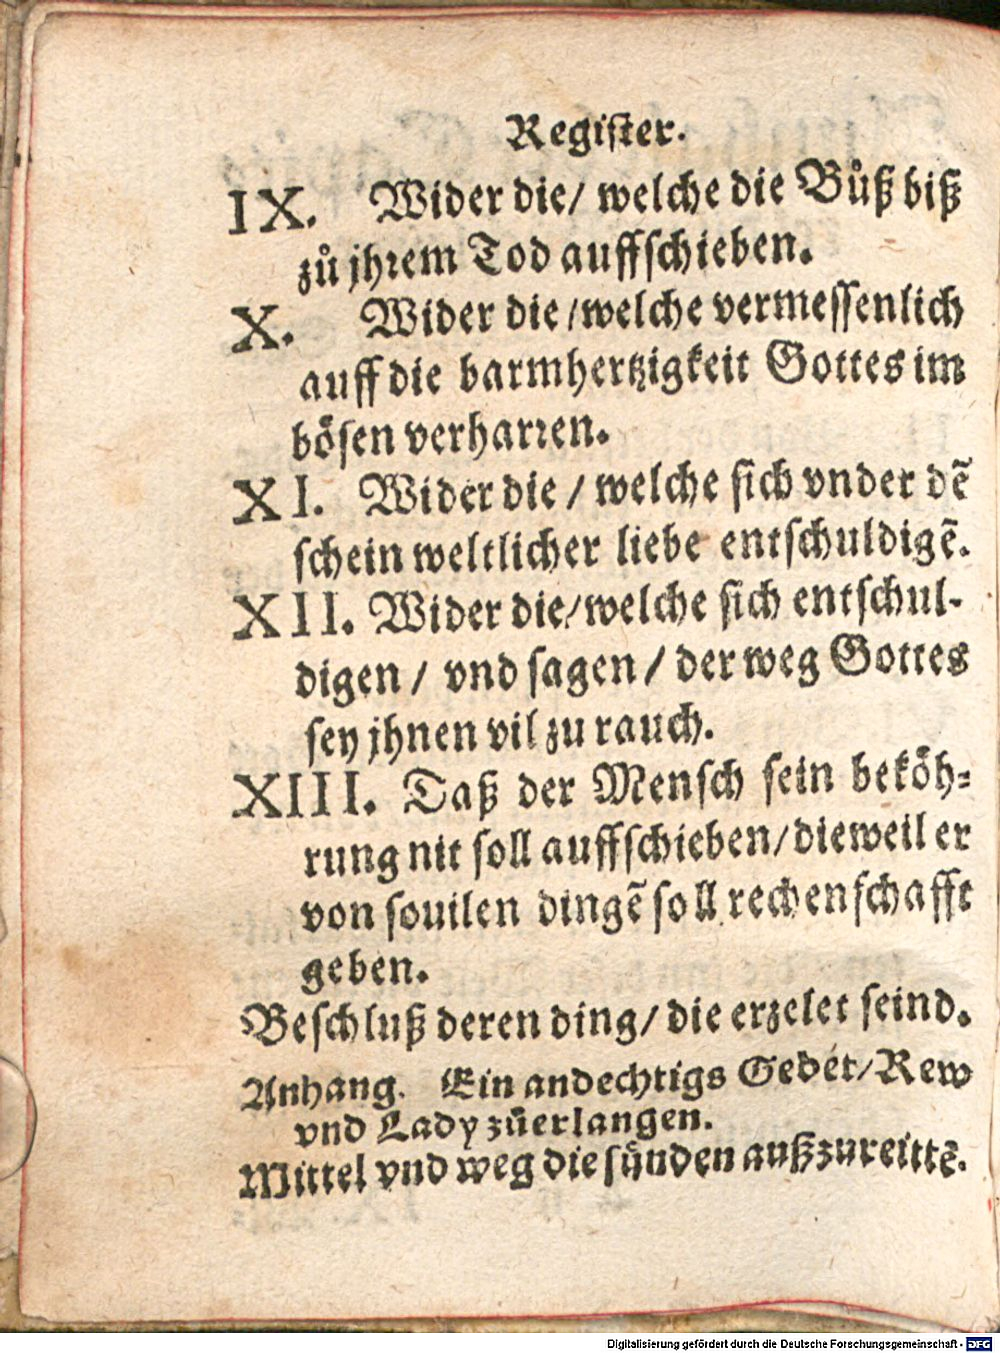 Register.
IX. Wider die/ welche die Bůß biß
zů jhrem Tod auffschieben.
X. Wider die/welche vermessenlich
auff die barmhertzigkeit Gottes im
bösen verharren.
XI. Wider die / welche sich vnder dẽ
schein weltlicher liebe entschuldigẽ.
XII. Wider die/welche sich entschul-
digen/ vnd sagen/ der weg Gottes
sey jhnen vil zu rauch.
XIII. Daß der Mensch sein beköh-
rung nit soll auffschieben/dieweil er
von souilen dingẽ soll rechenschafft
geben.
Beschluß deren ding/ die erzelet seind.
Anhang. Ein andechtigs Gebet/Rew
vnd Lady zůerlangen.
Mittel vnd weg die sünden außzureittẽ.
Digitalisierung gefördert durch die Deutsche Forschungsgemeinschaft - DFG